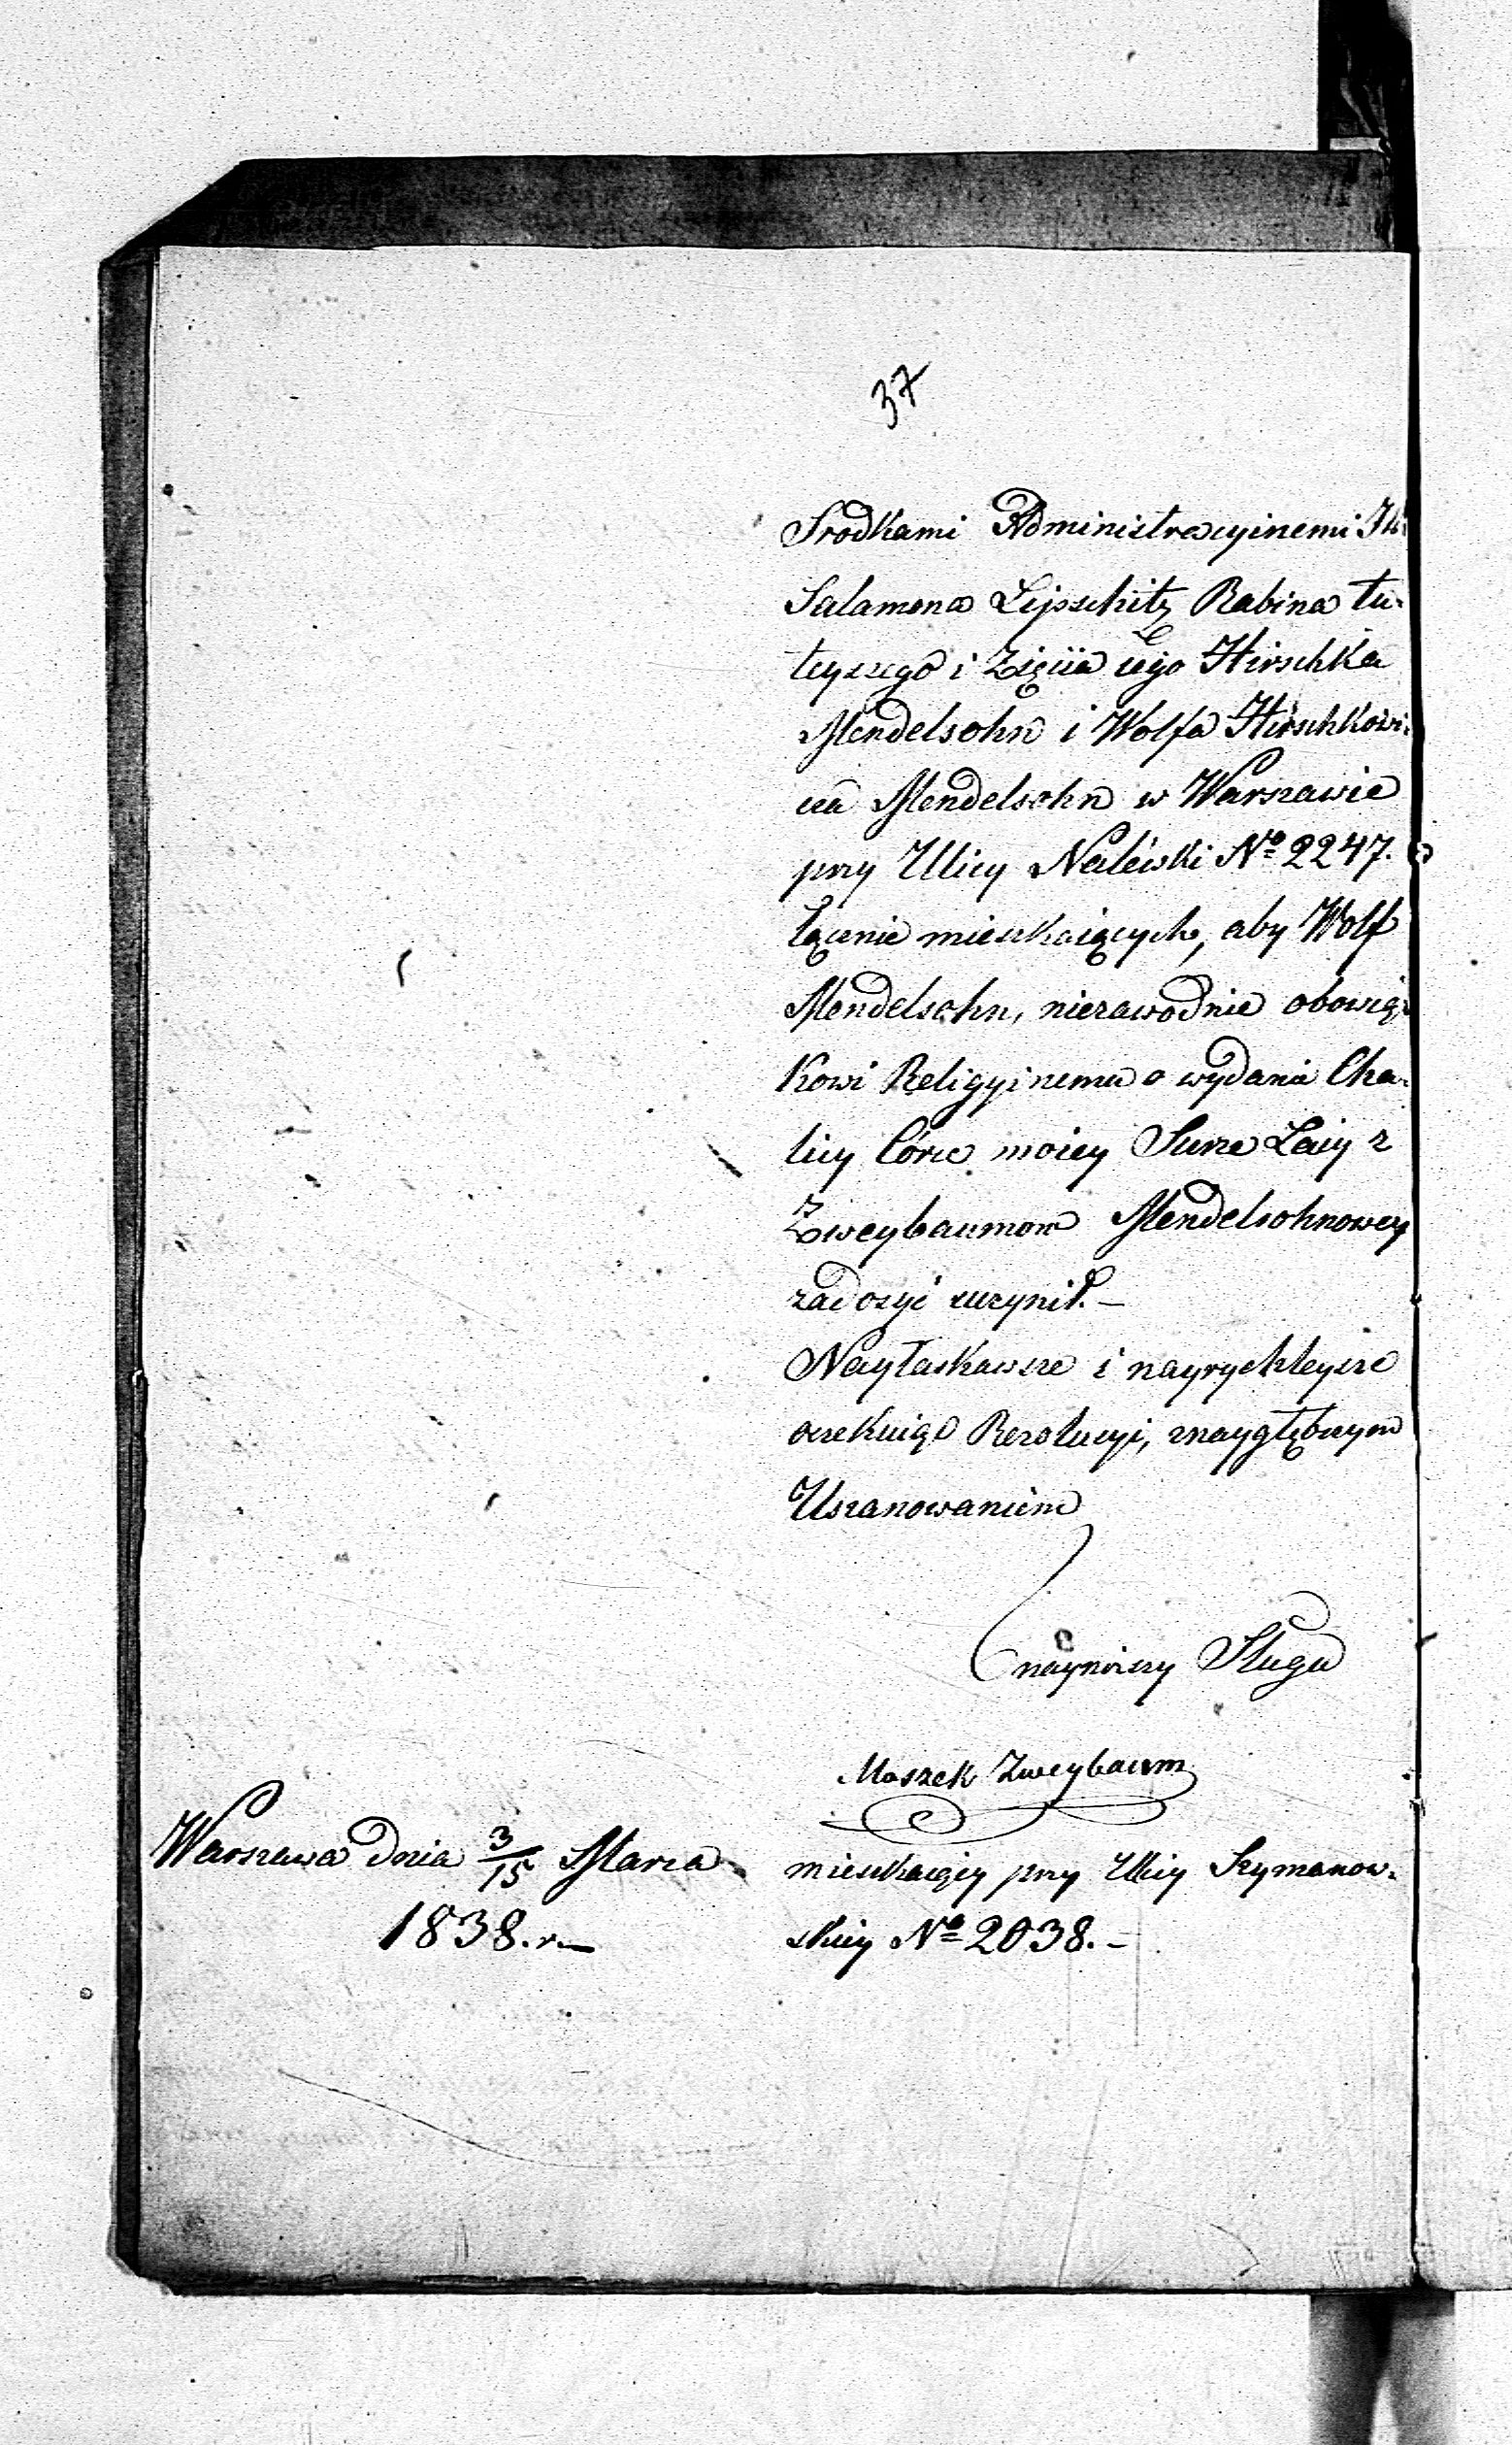 37
Srodkami Administracyinemi
Salamona Lipschitz Rabina tu-
teyszego i Zięcia iego Hirschka
Mendelsohn i Wolfa Hirschkowi-
cza Mendelsohn w Warszawie
przy Ulicy Nalewki No 2247.
łącznie mieszkaiących, aby Wolf
Mendelsohn, niezawodnie obowiąz
kowi Religyinemu o wydania Cha-
licy Córce moiey Surze Łaiy z
Zweybaumow Mendelsohnowey
zadosyć uczynił. –
Nayłaskawsze i nayrychleysze
oczekuiąc Rezolucyi, znaygłębszym
Uszanowaniem
nayniższy Sługa
Moszek Zweybaum
mieszkaiący przy Ulicy Szymanow-
skiey No 2038. –
Warszawa dnia 3/15 Marca
1838. r. –